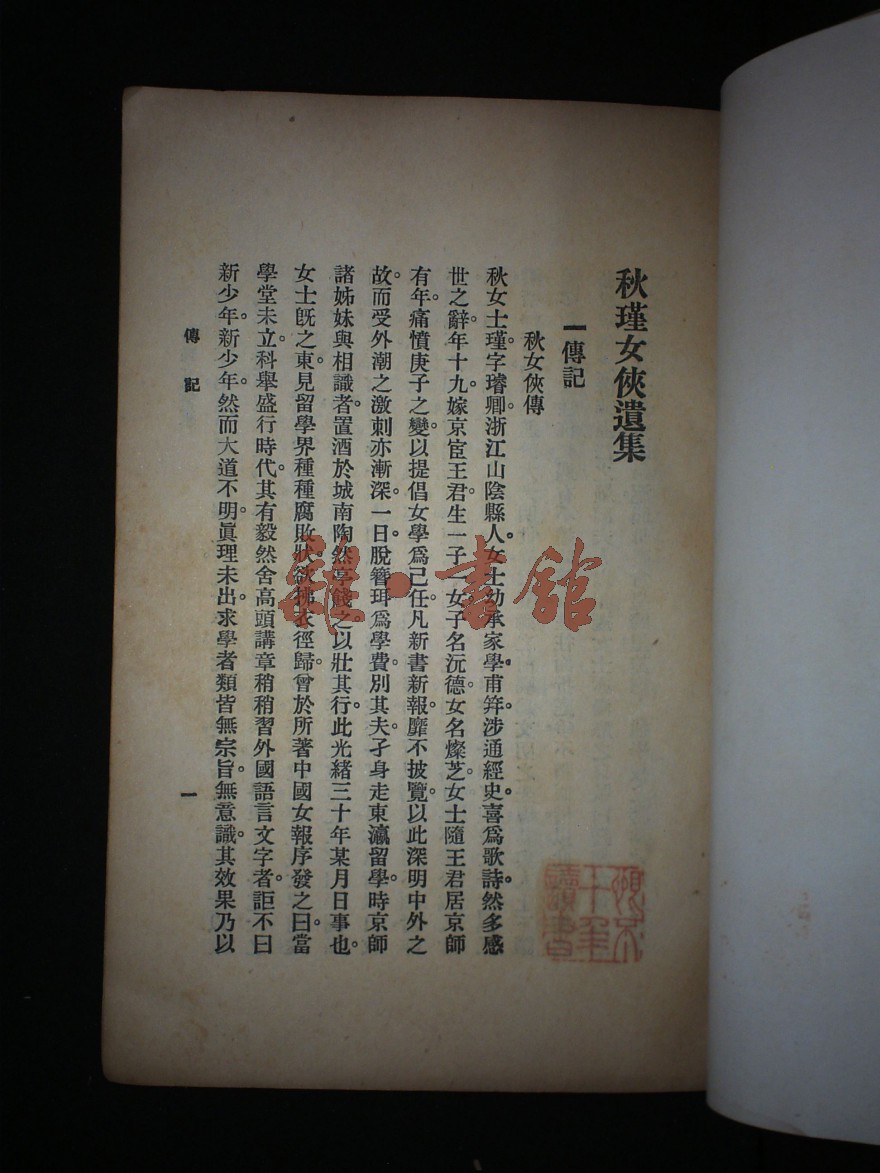 秋瑾女俠遺集
一 傳記
秋女俠傳
秋女士瑾。字璿卿。浙江山陰縣人。女士幼承家學。甫笄。涉通經史。喜爲歌詩。然多感
世之辭。年十九。嫁京宦王君。生一子一女。子名沅德。女名燦芝。女士隨王君居京師
有年。痛憤庚子之變。以提倡女學爲己任。凡新書新報。靡不披覽。以此深明中外之
故。而受外潮之激刺亦漸深。一日。脫簪珥爲學費。別其夫。孑身走東瀛留學。時京師
諸姊妹與相識者。置酒於城南陶然亭餞之。以壯其行。此光緒三十年某月日事也。
女士旣之東。見留學界種種腐敗狀。欲拂衣徑歸。曾於所著中國女報序發之曰。當
學堂未立。科舉盛行時代。其有毅然舍高頭講章。稍稍習外國語言文字者。詎不曰
新少年。新少年。然而大道不明。眞理未出。求學者類皆無宗旨。無意識。其效果乃以
傳記
一
雜·書館